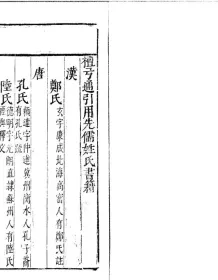 檀弓通引用先儒姓氏書籍
漢
鄭氏 玄字康成北海高密人有鄭氏註
唐
孔氏 穎達字仲達冀州衡水人孔子裔
有孔氏疏
陸氏 德明字元朗直隸蘇州人有陸氏
釋文